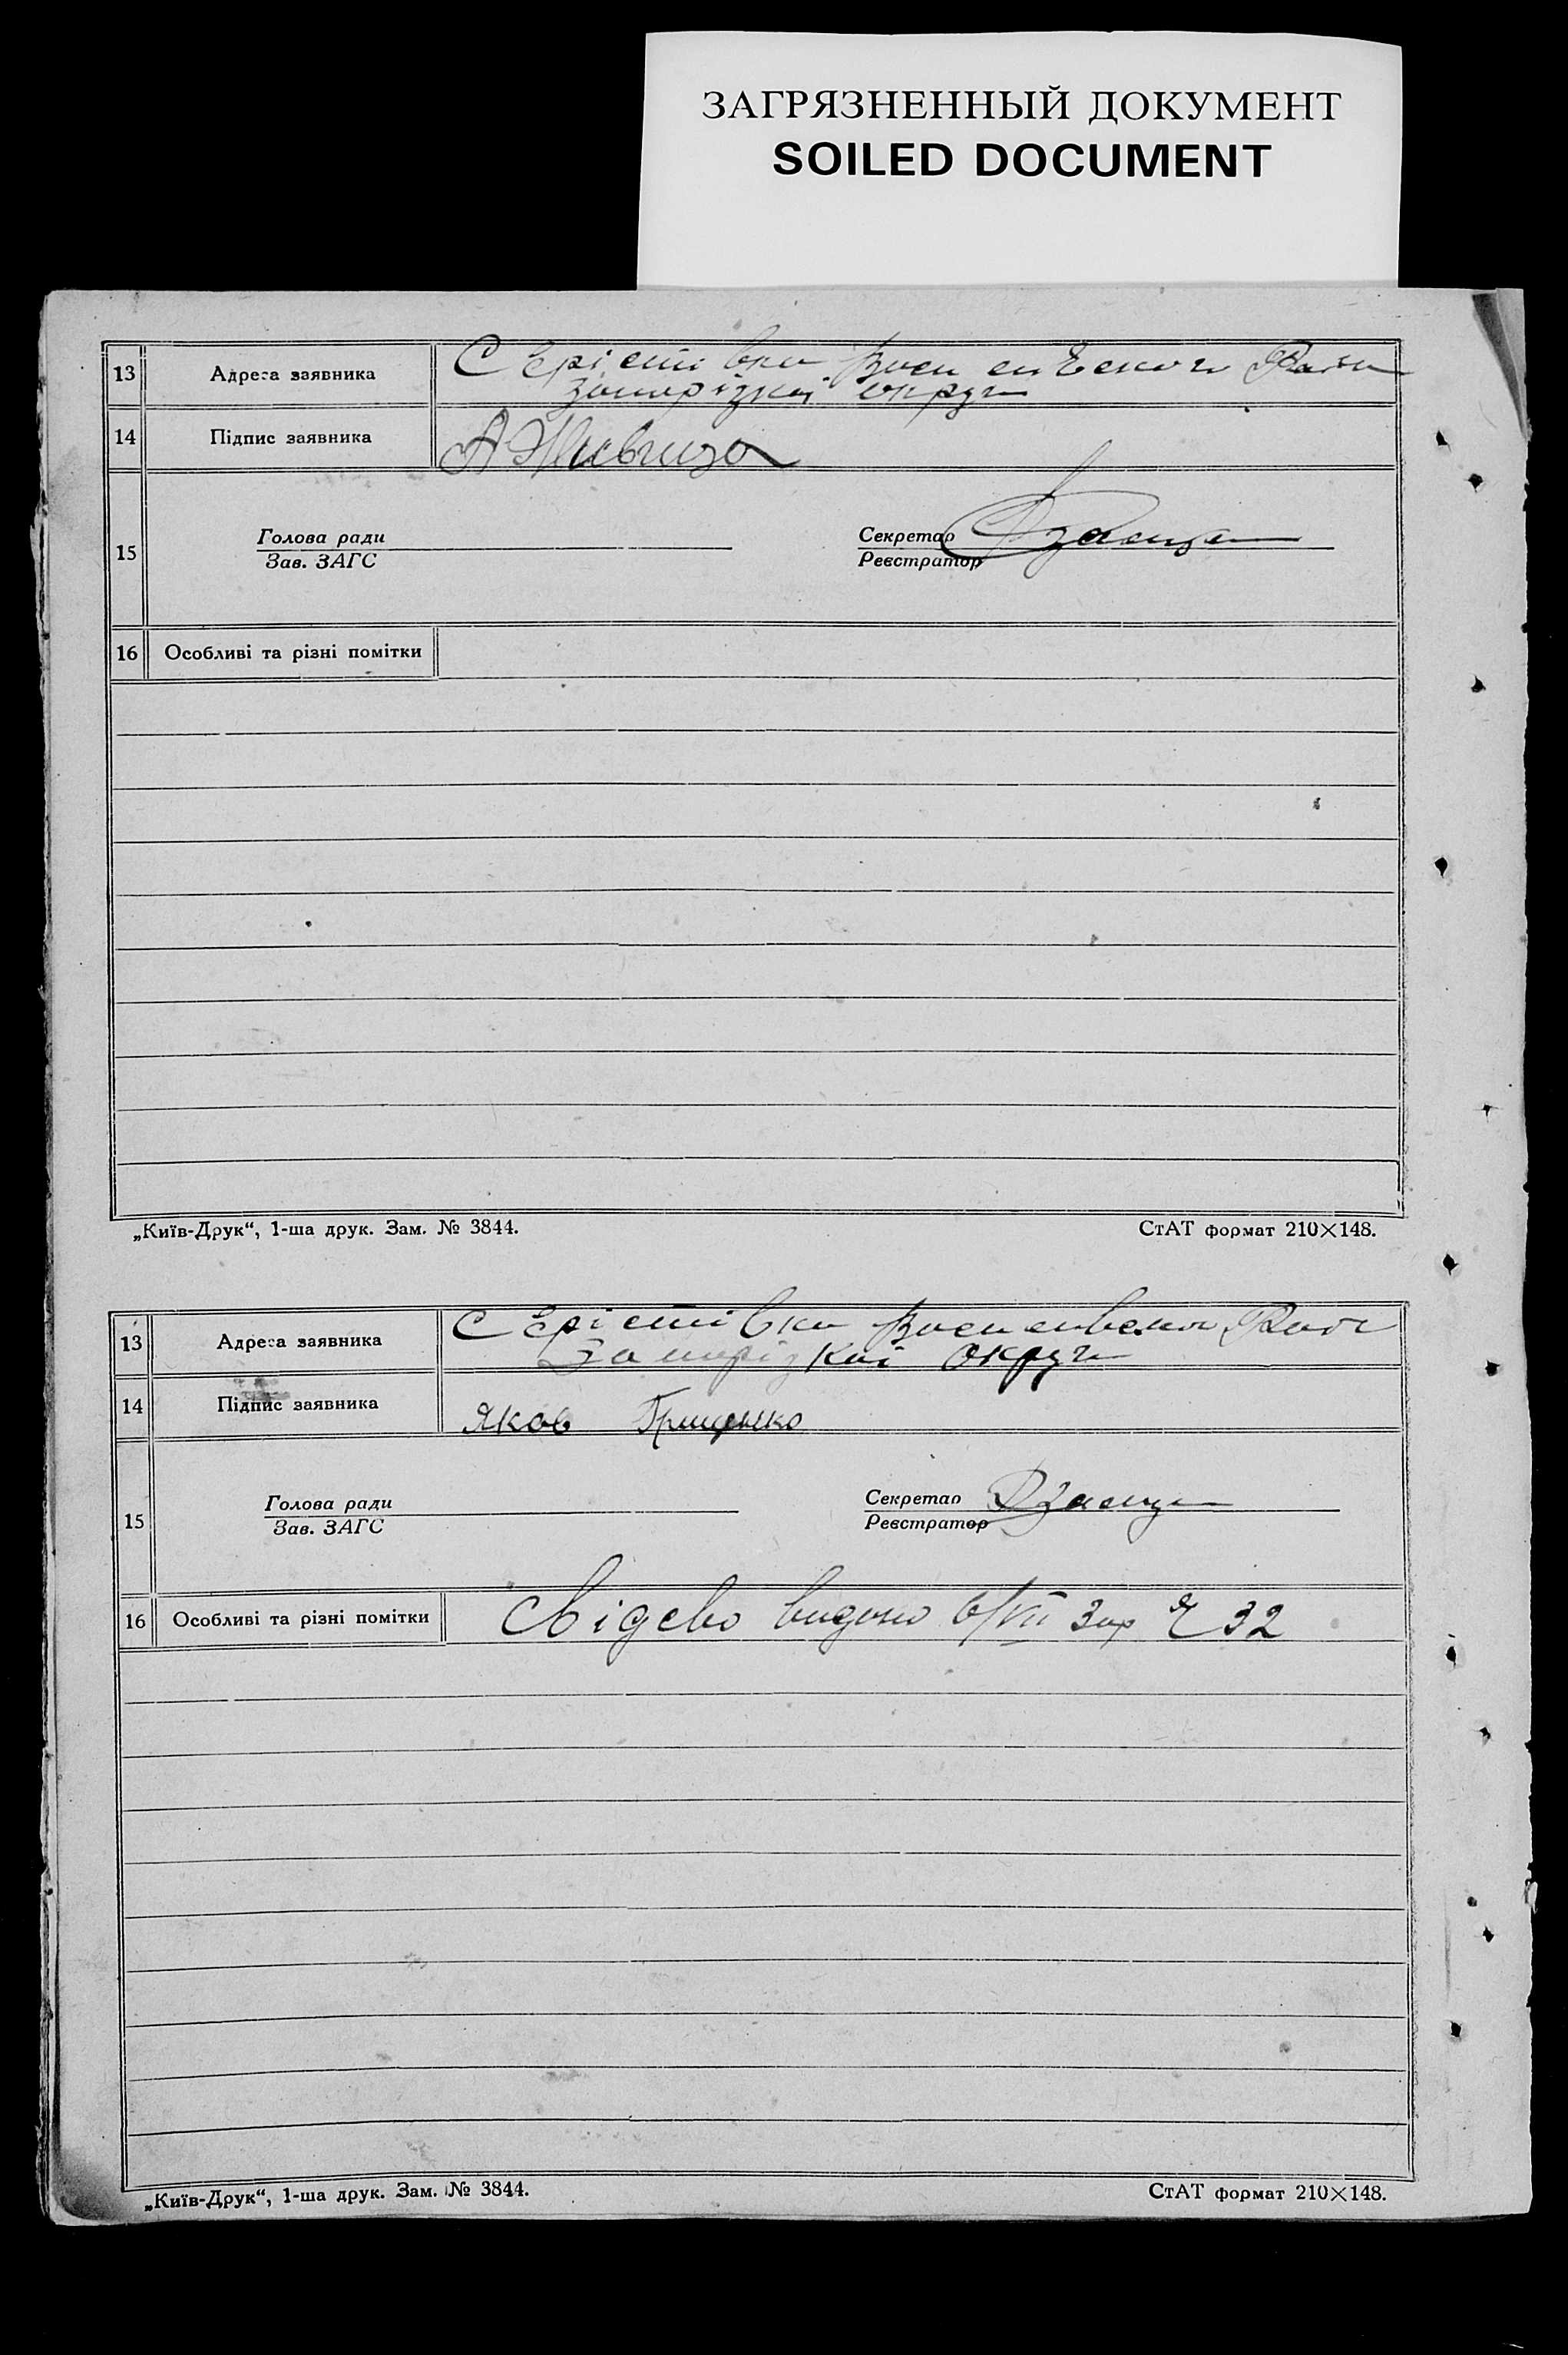 ЗАГРЯЗНЕННЫЙ ДОКУМЕНТ
SOILED DOCUMENT
13 Адреса заявника С Єрістівки
Запорізкої округи
14 Підпис заявника А
15
Голова ради
Зав. ЗАГС
Секретар
Реєстратор
16 Особливі та різні помітки
„Київ-Друк“, 1-ша друк. Зам. № 3844.
СтАТ формат 210×148.
13 Адреса заявника С Єрістівки
Запорізкої округи
14 Підпис заявника Яков Грищенко
15
Голова ради
Зав. ЗАГС
Секретар
Реєстратор
16 Особливі та різні помітки Свідство видано 6/VII за № 32
„Київ-Друк“, 1-ша друк. Зам. № 3844.
СтАТ формат 210×148.